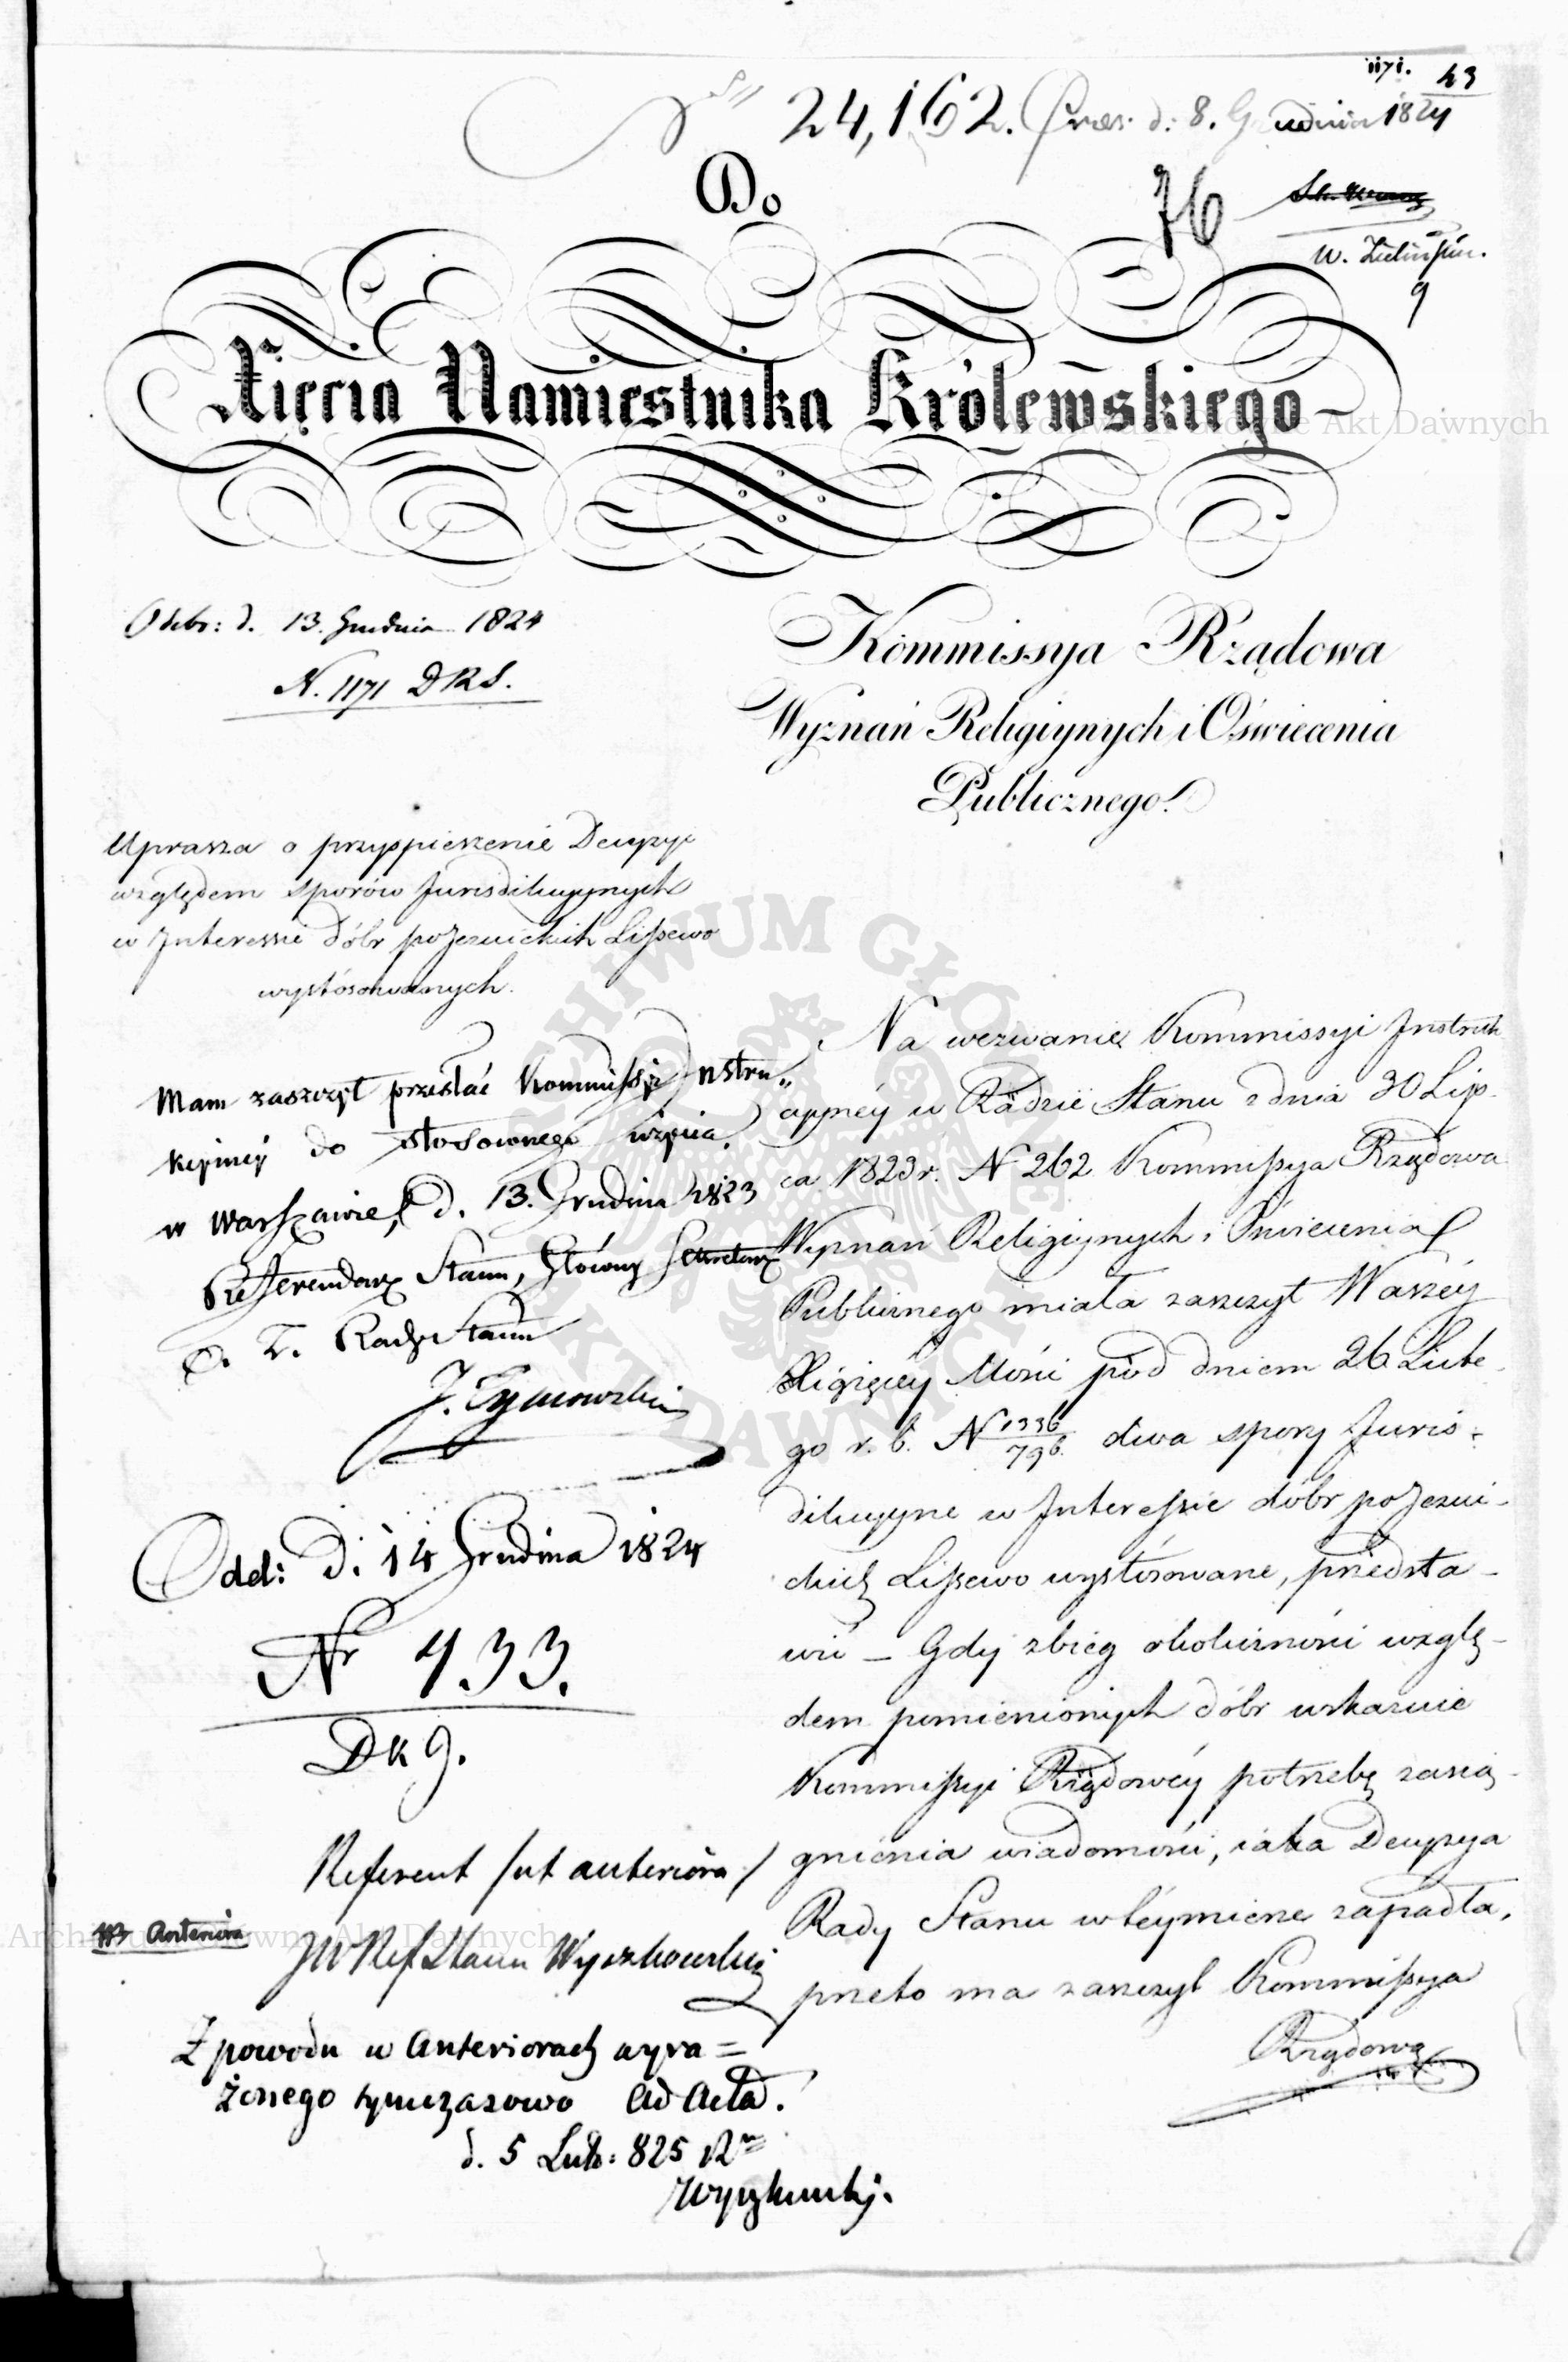 1171. 43
24,162. Præs. d: 8. Grudnia 1824
Do
76
9
Xięcia Namiestnika Królewskiego
Odebr: d. 13. Grudnia 1824
N. 1171 DRS.
Kommissya Rządowa
Wyznań Religiynych i Oświecenia
Publicznego.
Uprasza o przyspieszenie Decyzyi
względem sporów Jurisdikcyynych
w Interessie dóbr poJezuickich Lissewo
wystósowanych.
Mam zaszczyt przesłać Kommissyi Instru„
kcyiney do stosownego użycia.
w Warszawie, d. 13. Grudnia 1823
Referendarz Stanu, Główny Sekretarz
Rady Stanu
J. Tymowski
Odd: d. 14 Grudnia 1824
Nr 433.
Referent /ut anteriora/
Anteriora
JW Ref Stanu Wyczhowski
Z powodu w Anteriorach wyra=
żonego tymczasowo ad Acta.
d. 5 Lut: 825 R
Na wezwanie Kommissyi Instruk
cyyney w Radzie Stanu z dnia 30 Lip-
ca 1823 r. N 262 Kommissya Rządowa
Wyznań Religiynych i Oświecenia
Publicznego miała zaszczyt Waszéy
Xiążęcéy Mości pod dniem 26 Lute-
go r. b. N 1336/796. dwa spory Juris-
dikcyyne w Interessie dóbr poJezui-
ckich Lissewo wystósowane, przedsta-
wić – Gdy zbieg okoliczności wzglę-
dem pomienionych dóbr wskazuie
Kommissyi Rządowéy potrzebę zasią-
gnienia wiadomości, iaka Decyzya
Rady Stanu w téymierze zapadła,
przeto ma zaszczyt Kommissya
Rządowa
Archiwum Główne Akt Dawnych
ARCHIWUM GŁÓWNE
AKT DAWNYCH
Archiwum Główne Akt Dawnych